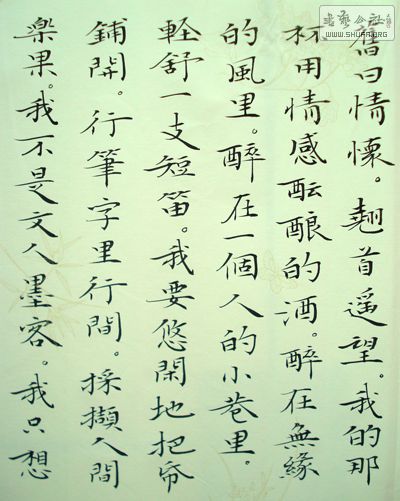 書藝公社
WWW.SHUFA.ORG
舊日情懷。翹首遥望。我的那
杯用情感酝酿的酒。醉在無緣
的風里。醉在一個人的小巷里。
輕舒一支短笛。我要悠閑地把帋
鋪開。行筆字里行間。採擷人間
樂果。我不是文人墨客。我只想